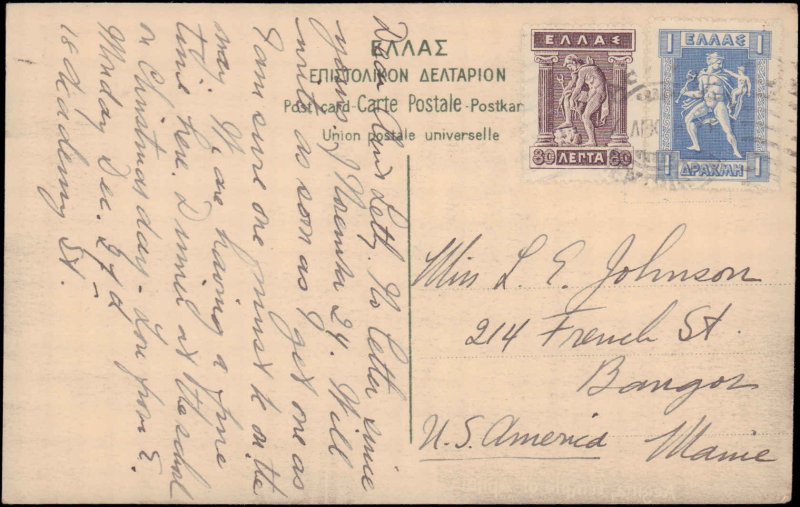 ΕΛΛΑΣ
ΕΠΙΣΤΟΛΙΚΟΝ ΔΕΛΤΑΡΙΟΝ
Post card - Carte Postale - Postkar
Union postale universelle
ΕΛΛΑΣ
80 ΛΕΠΤΑ 80
1 ΕΛΛΑΣ 1
1 ΔΡΑΧΜΗ 1
Dear Aunt Letty. No letter since
yours of November 24. Will
write as soon as I get one as
I am sure one must be on the
way. We are having a fine
time here. Dinner at the school
on Christmas day - Love from E.
Monday Dec. 27th
18 Academy St.
Miss L. E. Johnson
214 French St.
Bangor
U.S. America Maine